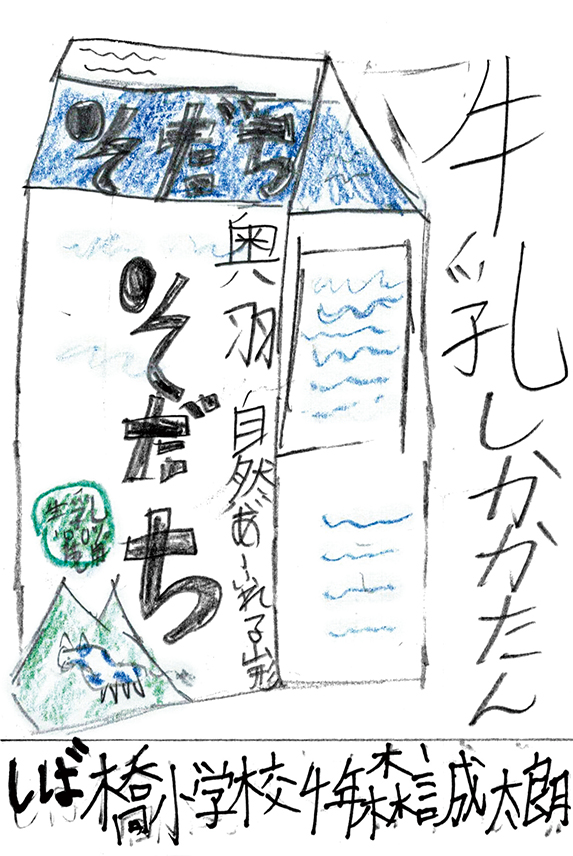 牛乳しかかたん
そだち
奥羽 自然あふれる山形
そだち
牛乳
100%
しば橋小学校4年森誠太朗